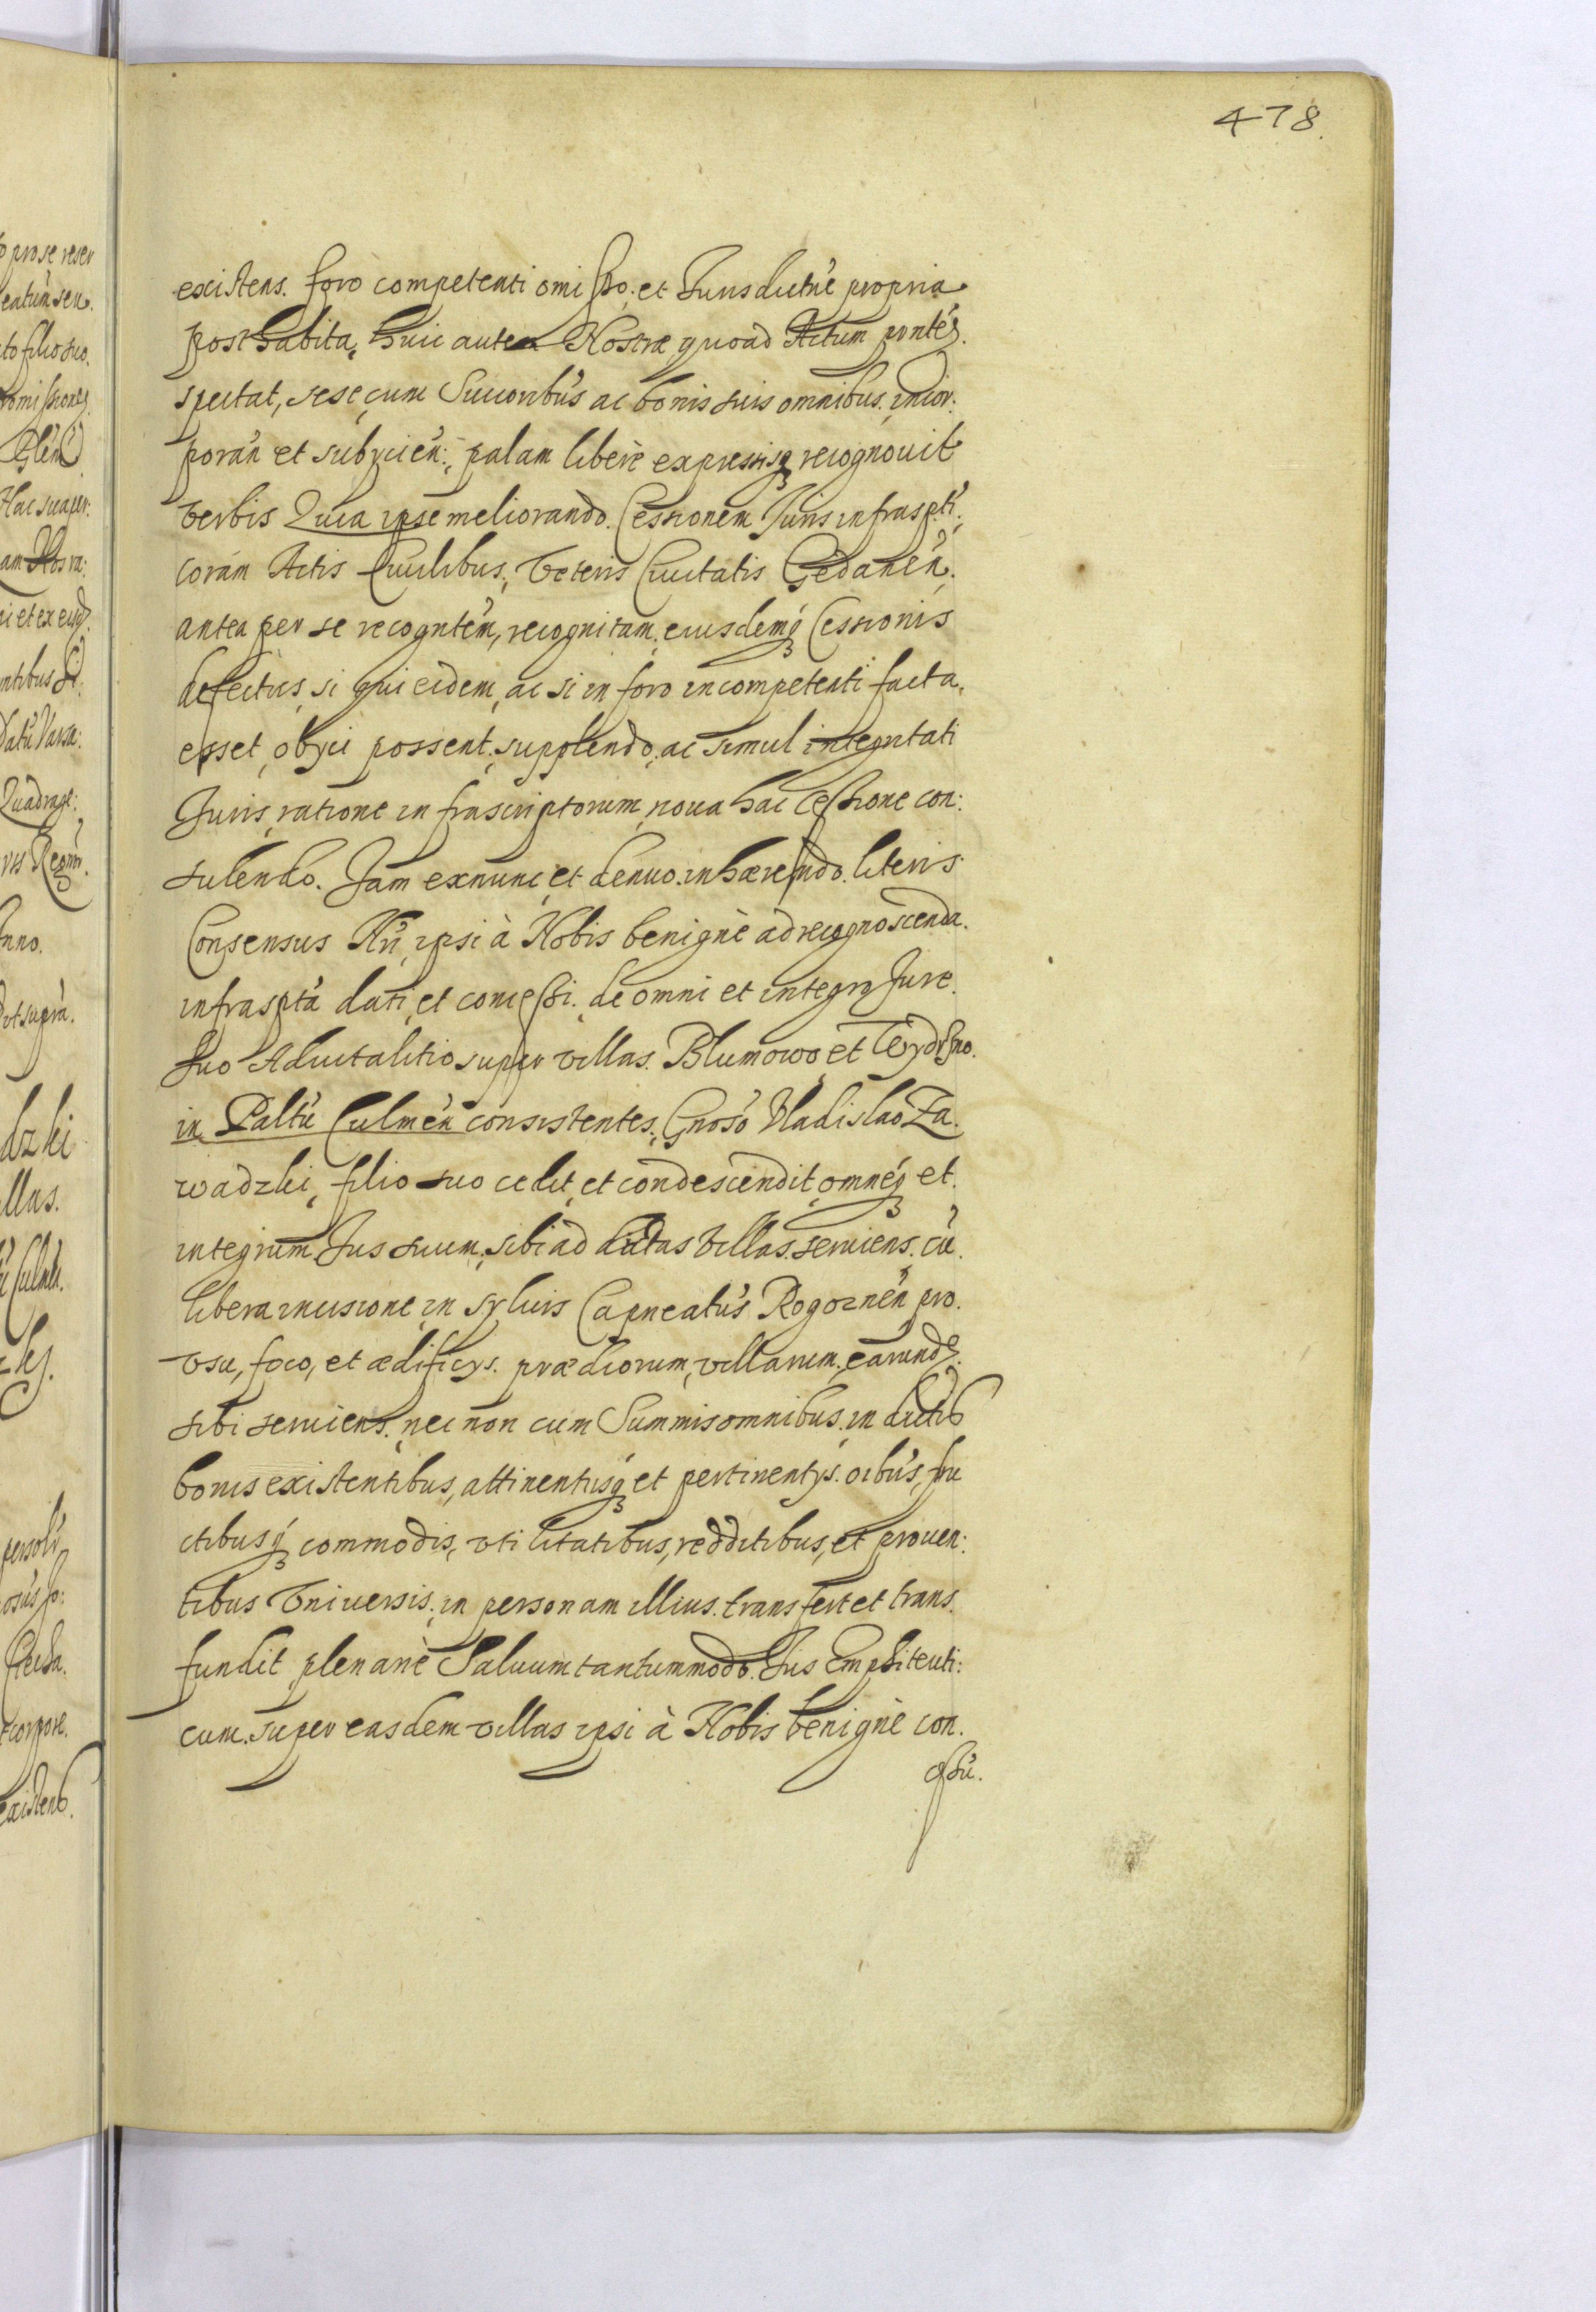 478.
existens. foro competenti omisso. et Jurisdictne propria
posthabita, huic autem Nostræ quoad Actum pntēs.
spectat, sese cum Succoribus ac bonis suis omnibus. incor:
poran et subycien:, palam liberè expressisq recognovit
verbis Quia ipse meliorando. Cessionem Juris infraspti,
coram Actis Civilibus, Veteris Civitatis Gedanen.
antea per se recogntem, recognitam, eiusdemq Cessionis
defectus, si qui eidem, ac si in foro incompetenti facta.
esset, obyci possent, supplendo, ac simul integritati
Juris, ratione infrascriptorum, noua hac Cessione con:
sulendo. Jam exnunc, et denuo. inhærendo. literis
Consensus Nri, ipsi à Nobis benignè ad recognoscenda.
infraspta dati, et concessi. de omni et integro Jure.
suo Aduitalitio super villas. Blumowo, et Wydrzno.
in Paltu Culmen consistentes, Gnoso Vladislao Za.
wadzki, filio suo cedit, et condescendit, omneq et.
integrum Jus suum, sibi ad dictas Villas. seruiens. cu.
libera incisione in syluis Capneatus Rogoznen pro.
vsu, foco, et ædificys. prædiorum, villarum, earunde.
sibi seruiens, nec non cum Summis omnibus. in dictis
bonis existentibus, attinentysq et pertinentys. oibus, fru
ctibusq commodis, vtilitatibus, redditibus, et prouen:
tibus Vniuersis, in personam illius. transfert et trans.
fundit plenariè Saluum tantummodo. Jus Emphiteuti:
cum. super easdem villas ipsi à Nobis benignè con.